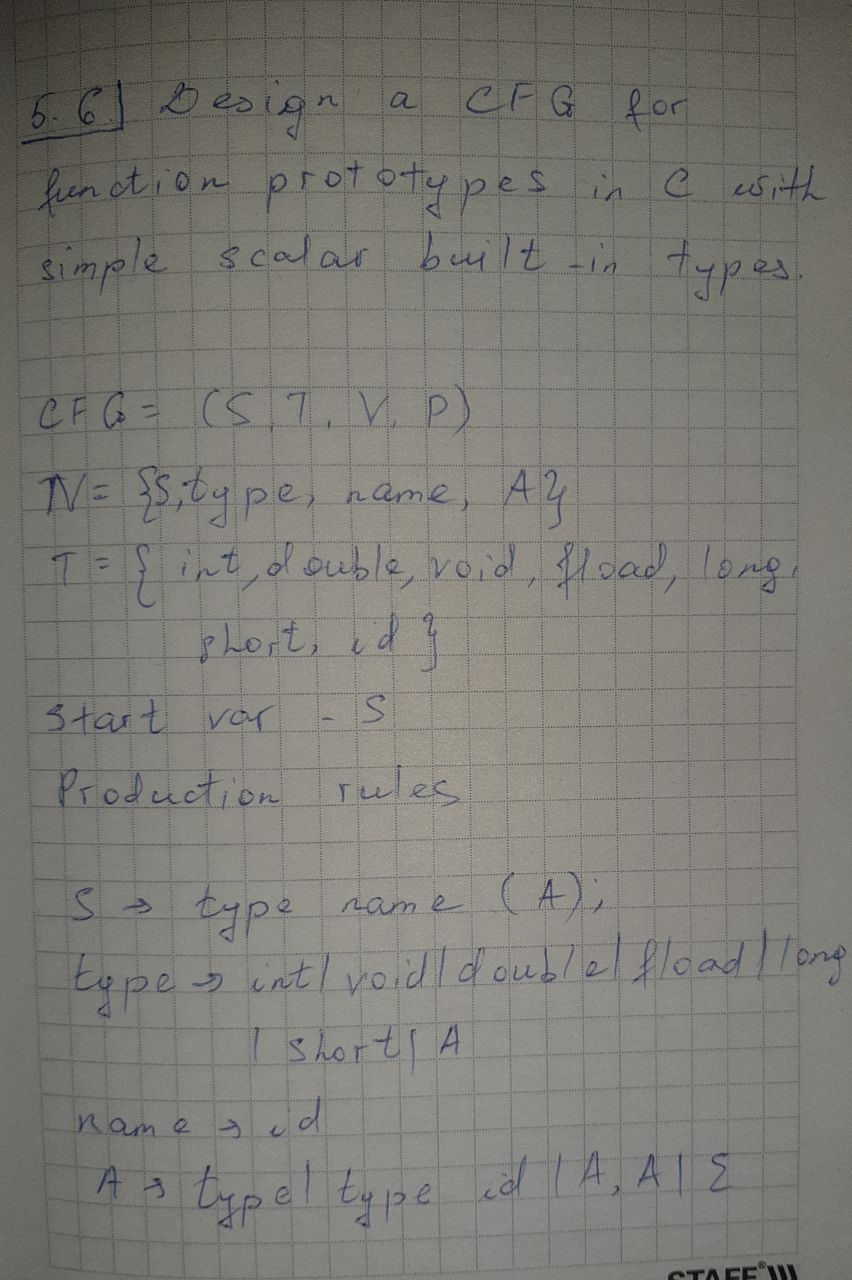 5.6 Design a CFG for
function prototypes in C with
simple scalar built-in types.
CFG = (S, T, V, P)
N = {S, type, name, A}
T = { int, double, void, fload, long,
short, id }
Start var - S
Production rules
S → type name (A);
type → int | void | double | fload | long
| short | A
name → id
A → type | type id | A, A | Σ
STAEF